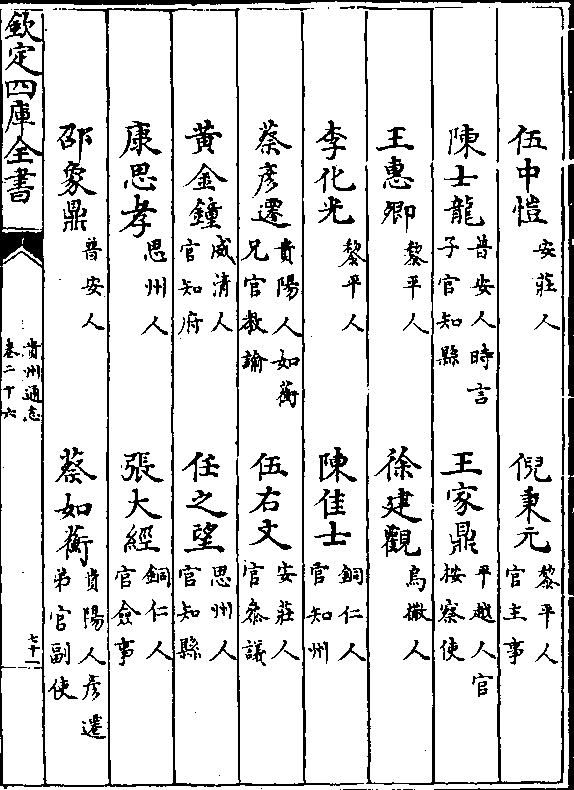 伍中愷 安莊人 倪秉元 黎平人官主事
陳士龍 普安人時言子官知縣 王家鼎 平越人官按察使
王惠卿 黎平人 徐建觀 烏撒人
李化光 黎平人 陳佳士 銅仁人官知州
蔡彥遷 貴陽人如蘅兄官教諭 伍右文 安莊人官叅議
黃金鐘 威清人官知府 任之望 思州人官知縣
康思孝 思州人 張大經 銅仁人官僉事
邵象鼎 普安人 蔡如蘅 貴陽人彥遷弟官副使
欽定四庫全書
貴州通志
卷二十六
七十一